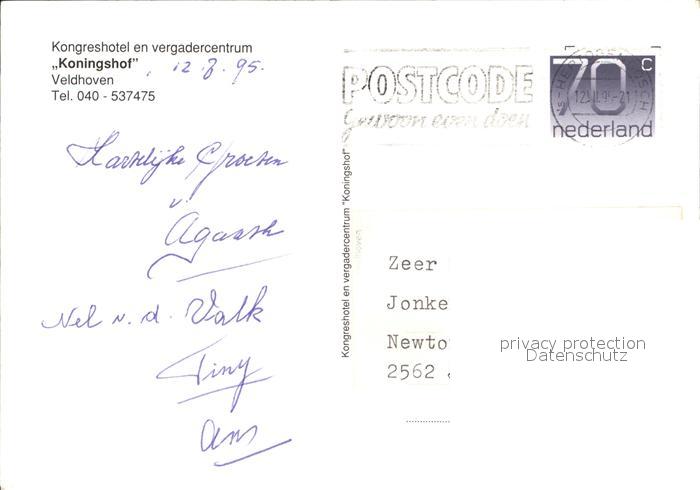 Kongreshotel en vergadercentrum
„Koningshof”
Veldhoven
Tel. 040 - 537475
12.8.95.
Hartelijke Groeten
v.
Agaash
Nel v. d. Valk
Tiny
Ans
Kongreshotel en vergadercentrum "Koningshof"
POSTCODE
Gewoon even doen
70 c
nederland
Zeer
Jonke
Newto
2562
privacy protection
Datenschutz